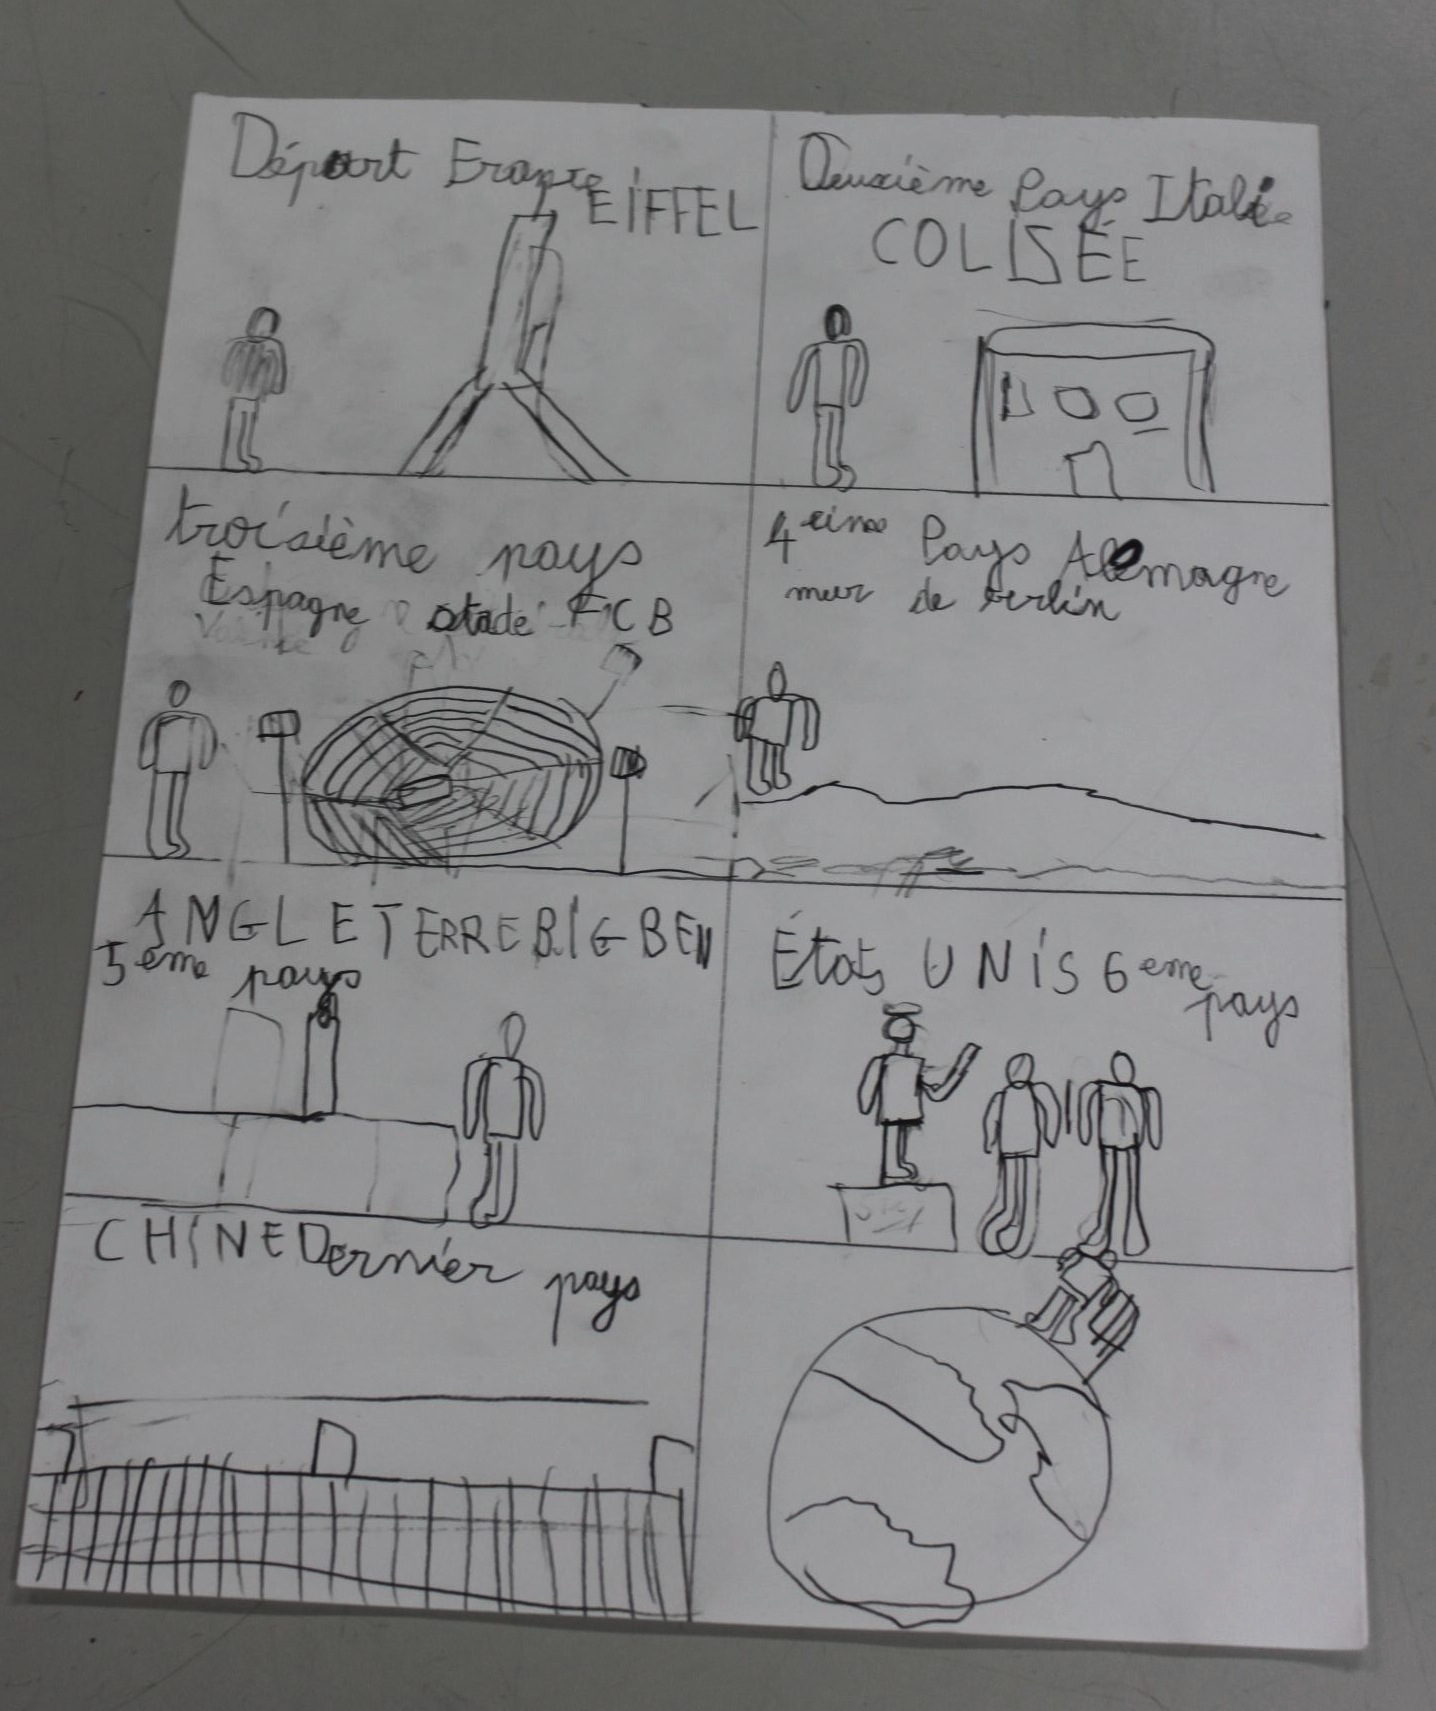 Départ France
EIFFEL
Deuxième Pays Italie
COLISÉE
troisième pays
Espagne stade FCB
4eime Pays Alemagne
mur de berlin
ANGLETERRE BIG BEN
5eme pays
États UNIS 6eme
pays
CHINE Dernier pays